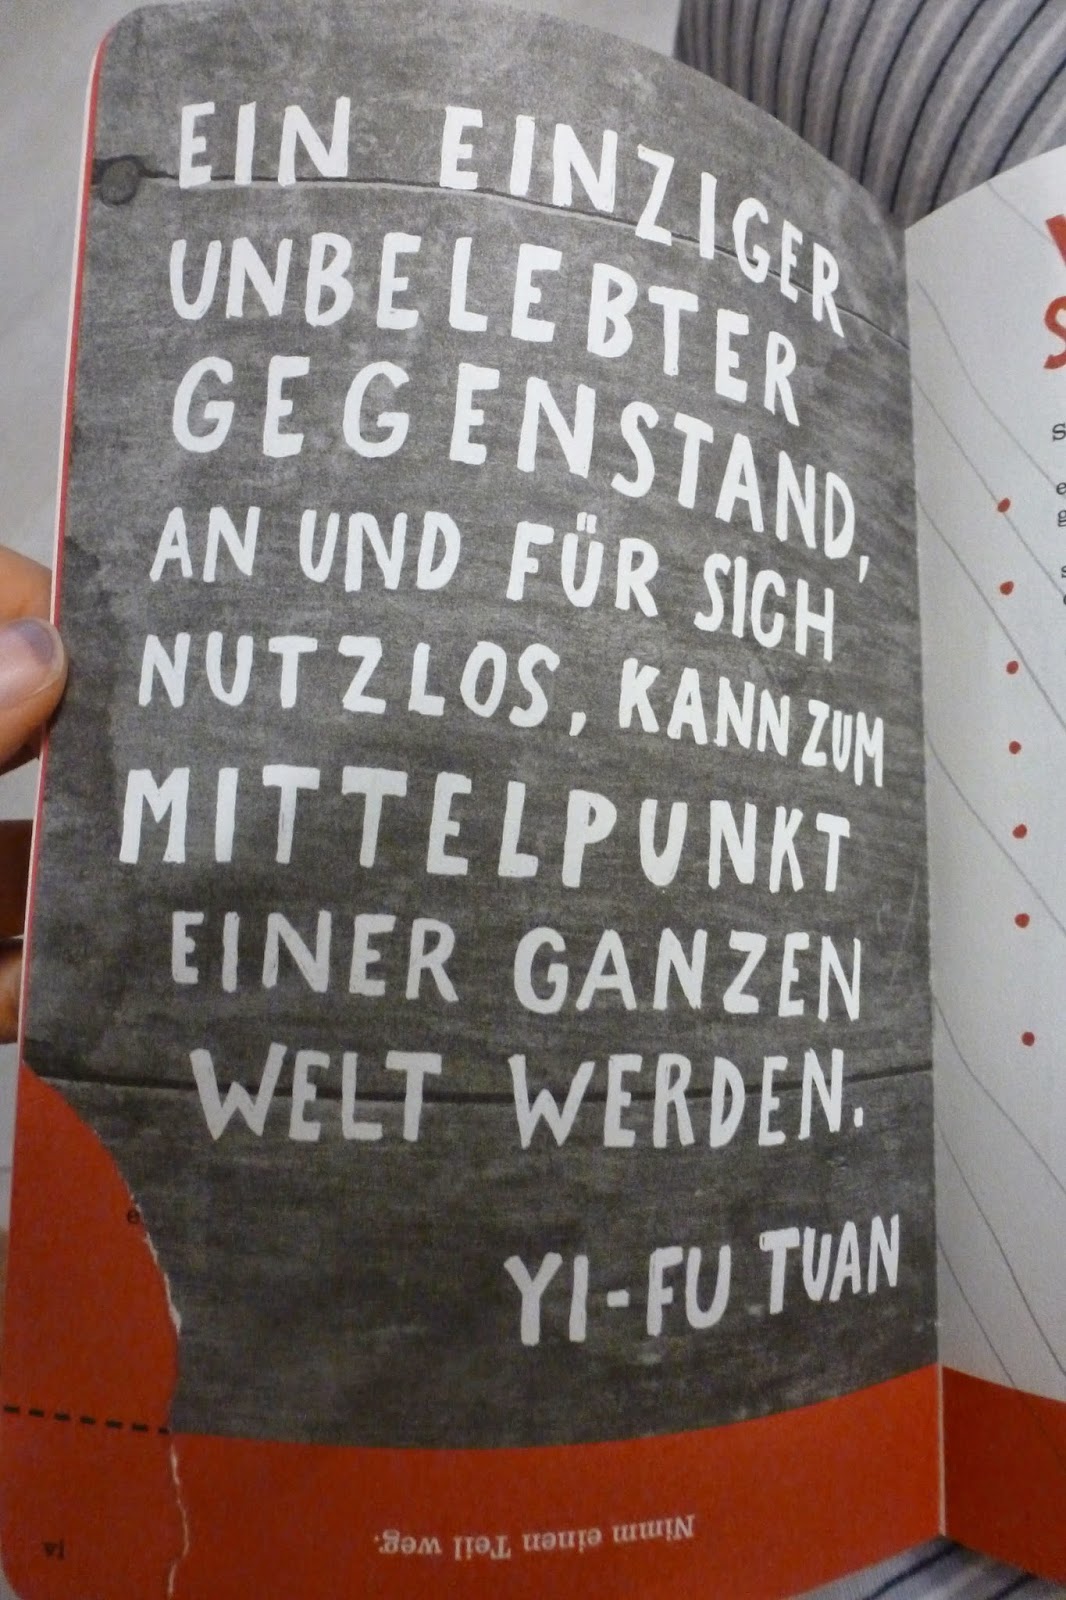 EIN EINZIGER
UNBELEBTER
GEGENSTAND,
AN UND FÜR SICH
NUTZLOS, KANN ZUM
MITTELPUNKT
EINER GANZEN
WELT WERDEN.
YI-FU TUAN
Nimm einen Teil weg.